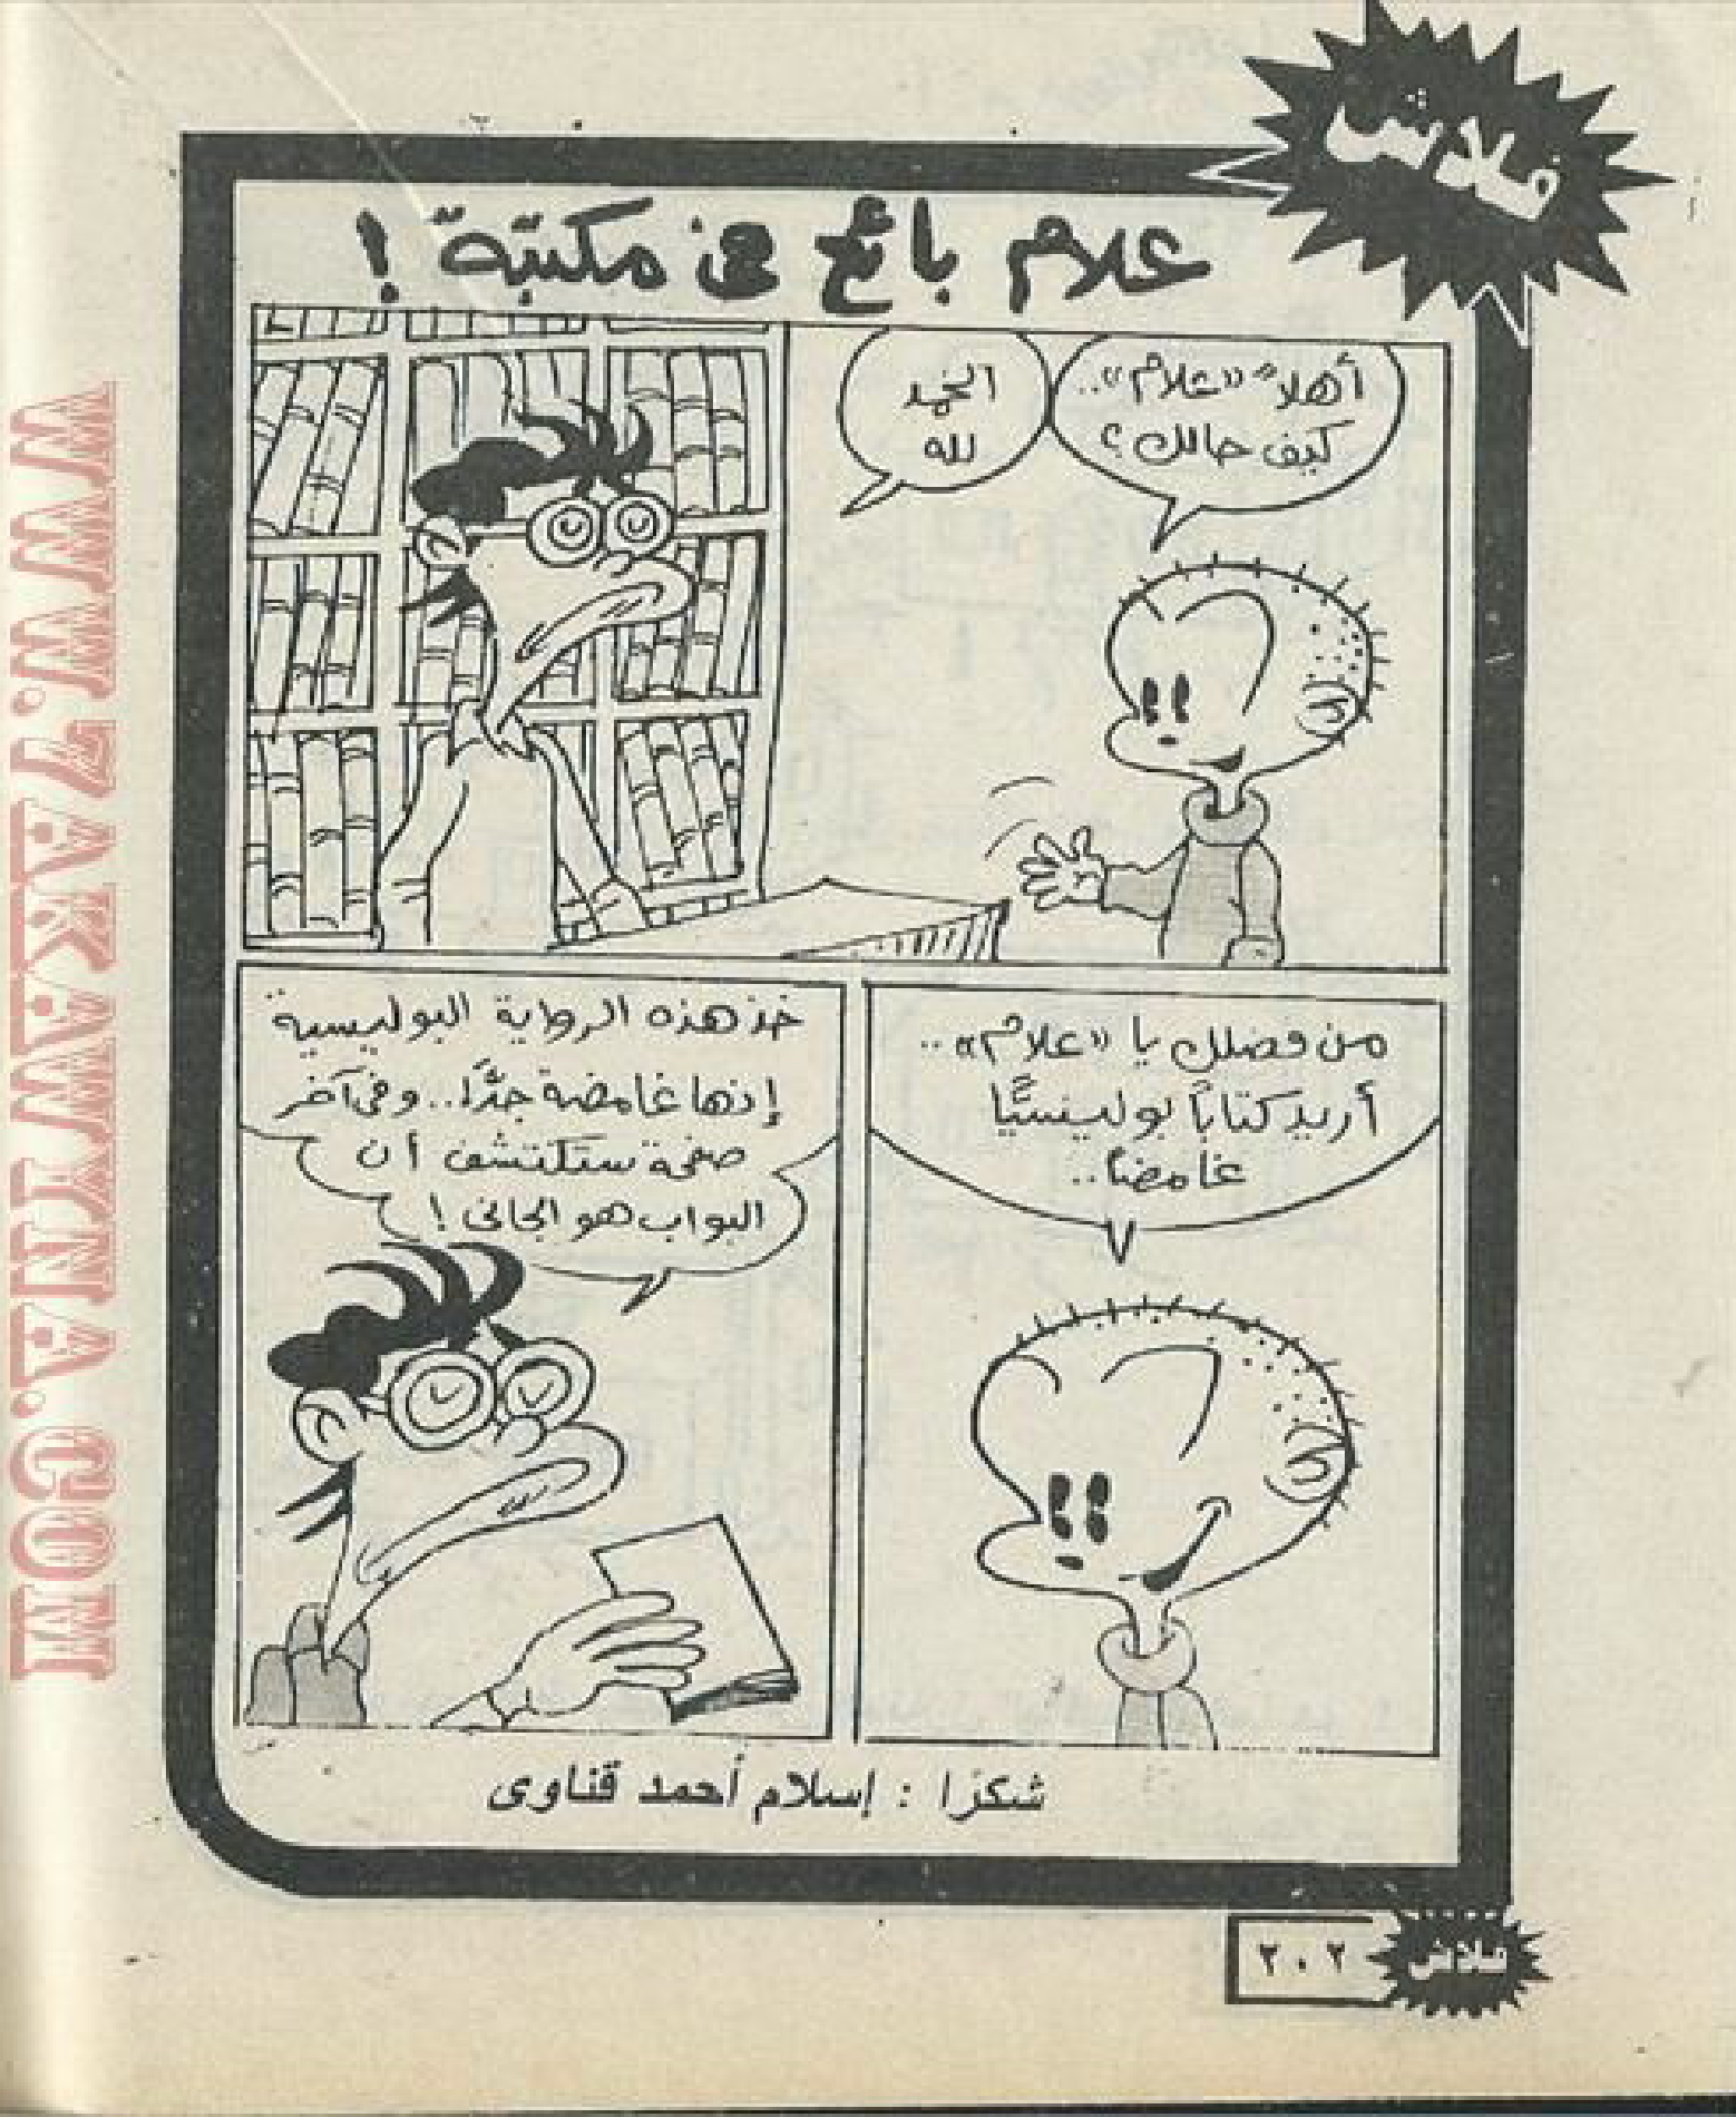 فلاش
علام بائع فى مكتبة !
أهلاً «علام»..
كيف حالك ؟
الحمد
لله
من فضلك يا «علام»..
أريد كتاباً بوليسيًّا
غامضاً..
خذ هذه الرواية البوليسية
إنها غامضة جدًّا.. وفى آخر
صفحة ستكتشف أن
البواب هو الجانى !
شكرًا : إسلام أحمد قناوى
فلاش
٢٠٢
WWW.7AKAWINA.COM